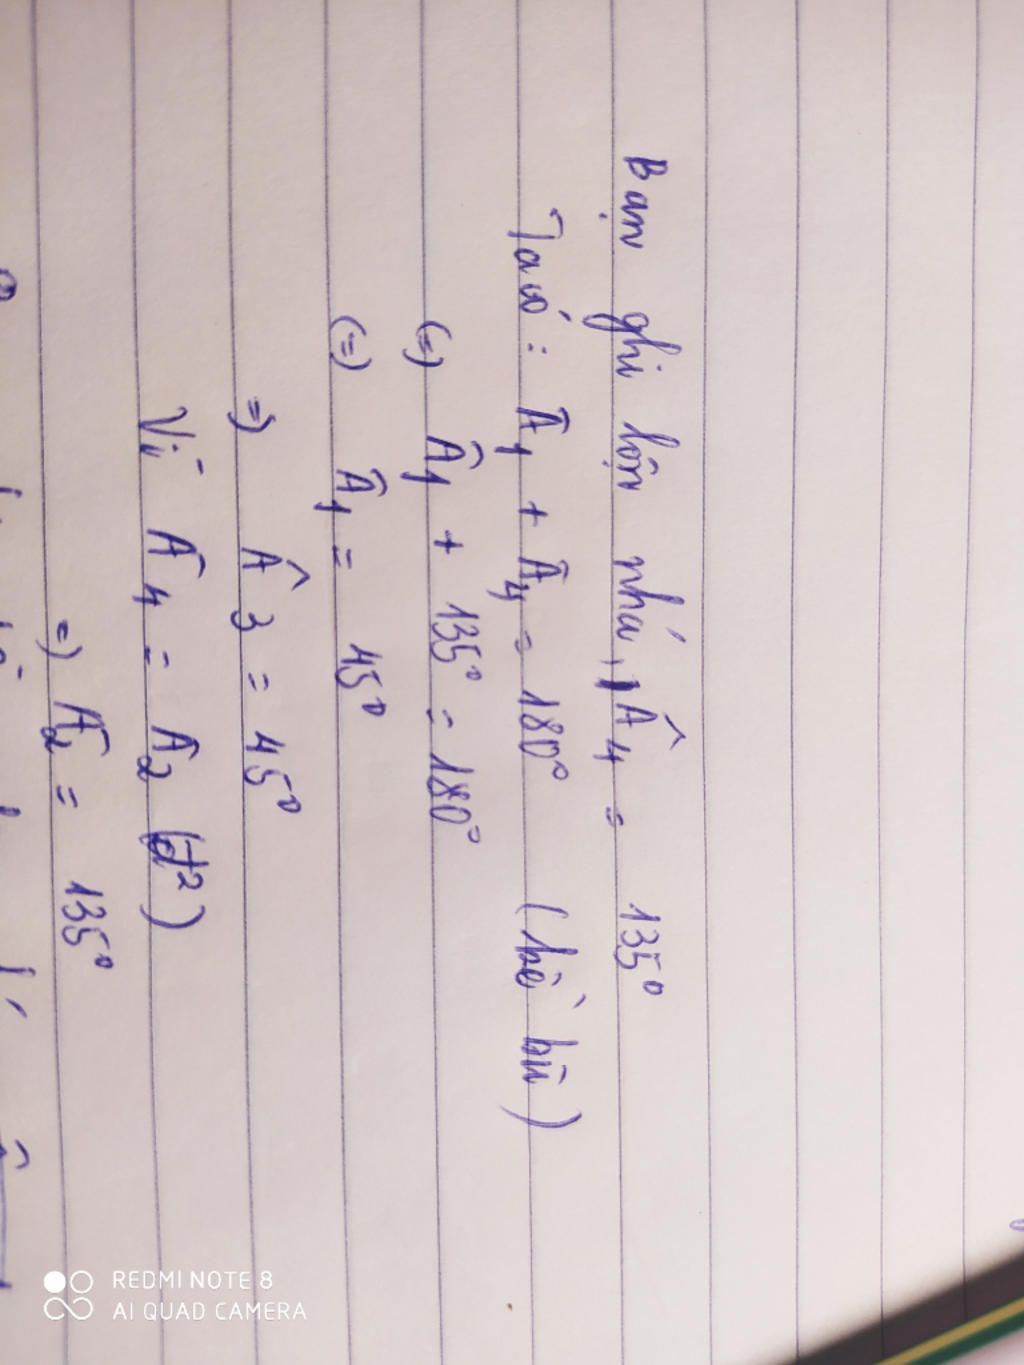 Bạn ghi lộn nhá, Â4 = 135°
Ta có: Â1 + Â4 = 180° (kề bù)
(=) Â1 + 135° = 180°
(=) Â1 = 45°
=) Â3 = 45°
Vì Â4 = Â2 (đ²)
=) Â2 = 135°
REDMI NOTE 8
AI QUAD CAMERA